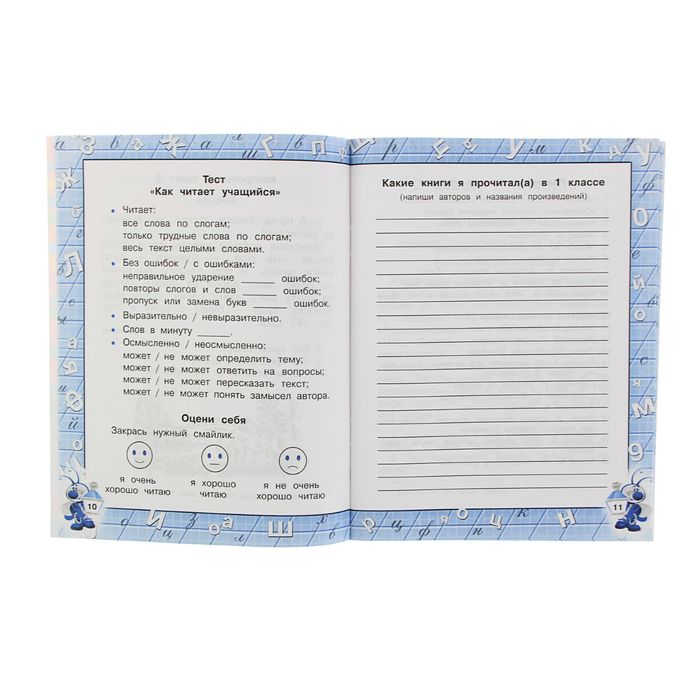 Тест
«Как читает учащийся»
• Читает:
все слова по слогам;
только трудные слова по слогам;
весь текст целыми словами.
• Без ошибок / с ошибками:
неправильное ударение ______ ошибок;
повторы слогов и слов ______ ошибок;
пропуск или замена букв ______ ошибок.
• Выразительно / невыразительно.
• Слов в минуту ______.
• Осмысленно / неосмысленно:
может / не может определить тему;
может / не может ответить на вопросы;
может / не может пересказать текст;
может / не может понять замысел автора.
Оцени себя
Закрась нужный смайлик.
я очень
хорошо читаю
я хорошо
читаю
я не очень
хорошо читаю
10
Какие книги я прочитал(а) в 1 классе
(напиши авторов и названия произведений)
11